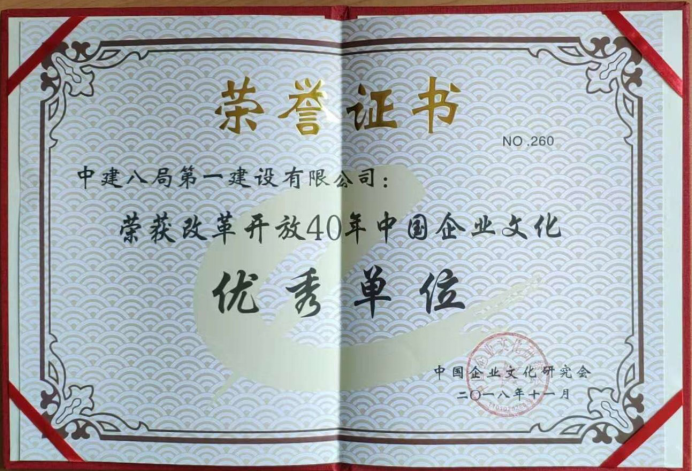 荣誉证书
NO.260
中建八局第一建设有限公司：
荣获改革开放40年中国企业文化
优秀单位
中国企业文化研究会
二〇一八年十一月